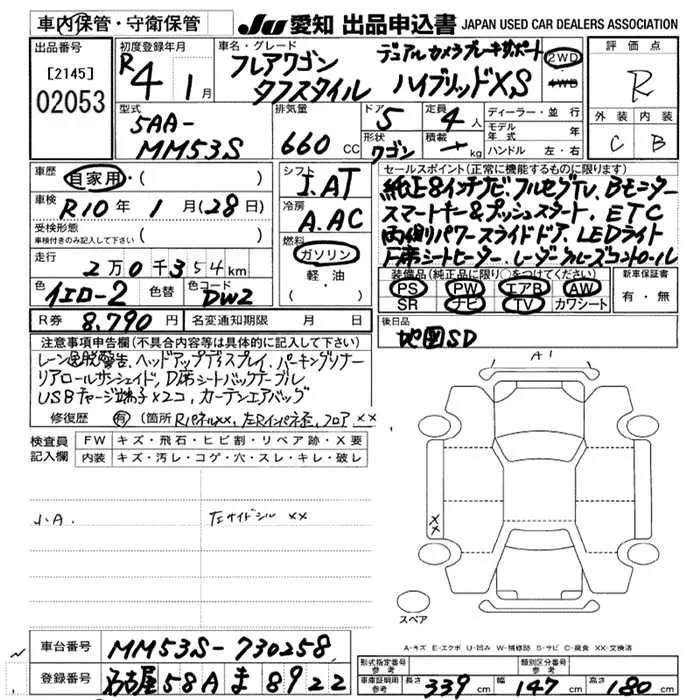 車内保管・守衛保管
JU 愛知 出品申込書 JAPAN USED CAR DEALERS ASSOCIATION
出品番号
[2145]
02053
初度登録年月
R4 1月
車名・グレード
デュアルカメラブレーキサポート
フレアワゴン
タフスタイル ハイブリッドXS
2WD
4WD
評価点
R
外装 内装
C B
型式
5AA-
MM53S
排気量
660 CC
ドア
5
形状
ワゴン
定員
4人
積載
kg
ディーラー・並行
モデル年式 年
ハンドル 左・右
車歴 自家用・( )
車検 R10年 1月(28日)
受検形態
車検付きのみ記入して下さい ( )
走行 2万0千354km
色 イエロー2 色替 色コード DW2
R券 8,790円 名変通知期限 月 日
シフト
I.AT
冷房
A.AC
燃料
ガソリン
軽・油
( )
セールスポイント(正常に機能するものに限ります)
純正8インチナビ、フルセグTV、Bモニター
スマートキー&プッシュスタート、ETC
両側パワースライドドア、LEDライト
F席シートヒーター、レーダークルーズコントロール
装備品(純正品に限り○をつけてください)
PS PW エアB AW
SR ナビ TV カワシート
新車保証書
有・無
後日品
地図SD
注意事項申告欄(不具合内容等は具体的に記入して下さい)
レーン逸脱警告、ヘッドアップディスプレイ、パーキングソナー
リアロールサンシェイド、D席シートバックテーブル
USBチャージ端子×2コ、カーテンエアバッグ
修復歴 有 (箇所 RパネルXX、左Rインパネ歪、フロアXX
検査員
記入欄
FW キズ・飛石・ヒビ割・リペア跡・X要
内装 キズ・汚レ・コゲ・穴・スレ・キレ・破レ
J.A.
左サイドシル XX
A1
XX
スペア
A-キズ E-エクボ U-凹み W-補修跡 S-サビ C-腐食 XX-交換済
車台番号 MM53S-730258
登録番号 名古屋 58A ま 8922
形式指定番号
参考
類別区分番号
参考
車庫証明用
参考
長さ 339cm 幅 147cm 高さ 180cm